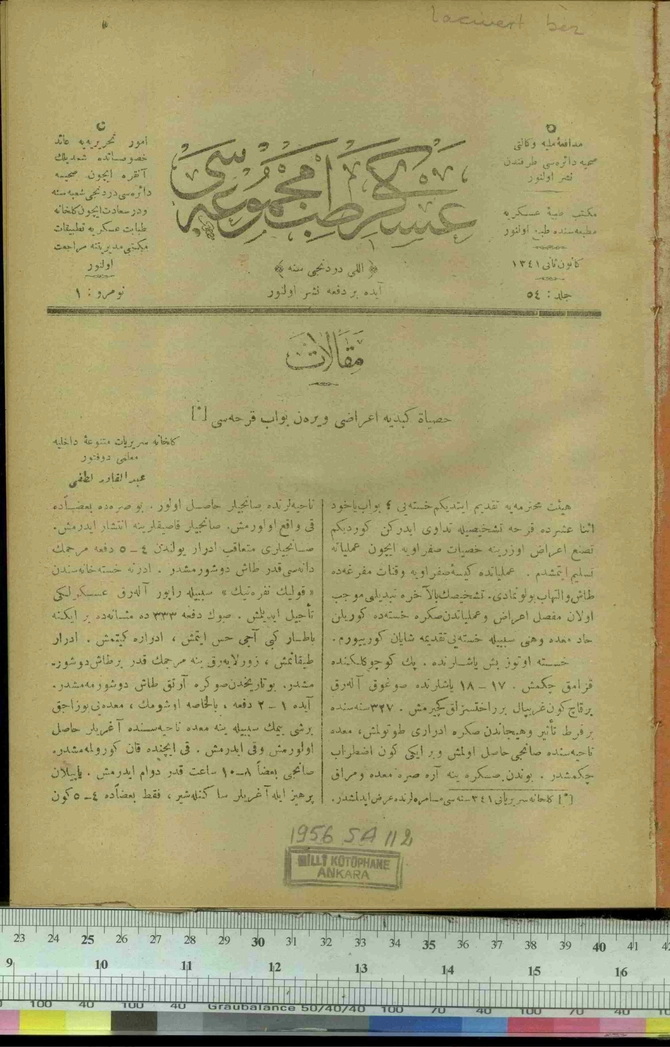 lacivert bez
مدافعهٔ ملیه وکالتی
صحیه دائره‌سی طرفندن
نشر اولنور
مکتب طبیهٔ عسکریه
مطبعه‌سنده طبع اولنور
کانون ثانی ١٣٤١
جلد : ٥٤
عسکری طب مجموعه‌سی
﴿ اللی دردنجی سنه ﴾
آیده بر دفعه نشر اولنور
امور تحریریه‌یه عائد
خصوصاتده شمدیلك
آنقره ایچون صحیه
دائره‌سی دردنجی شعبه‌سنه
ودرسعادت ایچون کلخانه
طبابت عسکریه تطبیقات
مکتبی مدیریتنه مراجعت
اولنور
نومرو : ١
مقالات
حصیاة کبدیه اعراضی ویرەن بواب قرحه‌سی [*]
کلخانه سریریات متنوعهٔ داخلیه
معلمی دوقتور
عبدالقادر لطفی
هیئت محترمه‌یه تقدیم ایتدیکم خسته‌یی ٤ بواب یاخود
اثنا عشرده قرحه تشخیصیله تداوی ایدرکن کوردیکم
اعراض اوزرینه حصیات صفراویه ایچون عملیاته
تسلیم ایتمشدم . عملیاتده کیسهٔ صفراویه وقنات مفرغه‌ده
طاش والتهاب بولونمادی. تشخیصك بالآخره تبدیلی موجب
اولان مفصل اعراض وعملیاتدن صکره خسته‌ده کوریلن
حاد معده وهنی سببیله خسته‌یی تقدیمه شایان کورییورم .
خسته اوتوز بش یاشلرنده . پك کوچوکلکنده
قزامق چکمش . ١٧ – ١٨ یاشلرنده صوغوق آلەرق
برقاچ کون غریپال بر راحتسزلق کچیرمش . ٣٢٧ سنه‌سنده
برفرط تأثیر وهیجاندن صکره ادراری طوتولمش، معده
ناحیه‌سنده صانجی حاصل اولمش وبر ایکی کون اضطراب
چکمشدر . بوندن صکره ینه آره صره معده ومراق
[*] کلخانه سریریاتی ٣٤١ سنه‌سی مسامره‌لرنده عرض ایدلمشدر.
ناحیه‌لرنده صانجیلر حاصل اولور . بو صره‌ده بعضاً ده
قی واقع اولورمش. صانجیلر قاصیقلرینه انتشار ایدرمش.
صانجیلری متعاقب ادرار یولندن ٤ – ٥ دفعه مرجمك
دانه‌سی قدر طاش دوشورمشدر . ادرنه خسته‌خانه‌سندن
« قولیك نفره‌تیك » سببیله راپور آلەرق عسکرلکی
تأجیل ایدیلمش . صوك دفعه ٣٣٣ ده مثانه‌ده بر ایکنه
باطار کبی آجی حس ایتمش ، ادراره کیتمش . ادرار
طیقانمش ، زورلایه‌رق ینه مرجمك قدر برطاش دوشور-
مشدر. بو تاریخدن صوکره آرتق طاش دوشورمه‌مشدر.
آیده ١ – ٢ دفعه ، بالخاصه اوشومك ، معده‌یی بوزاجق
برشی ییمك سببیله ینه معده ناحیه‌سنده آغریلر حاصل
اولورمش وقی ایدرمش . قی ایچنده قان کورولمه‌مشدر.
صانجی بعضاً ٨ – ١٠ ساعت قدر دوام ایدرمش . یاپیلان
پرهیز ایله آغریلر ساکنله‌شیر ، فقط بعضاً ده ٤ – ٥ کون
1956 SA 112
MİLLÎ KÜTÜPHANE
ANKARA
23 24 25 26 27 28 29 30 31 32 33 34 35 36 37 38 39 40 41 42
9 10 11 12 13 14 15 16
100 40 100 70 40 Graubalance 50/40/40 100 70 40 100 70 40 100 70 40